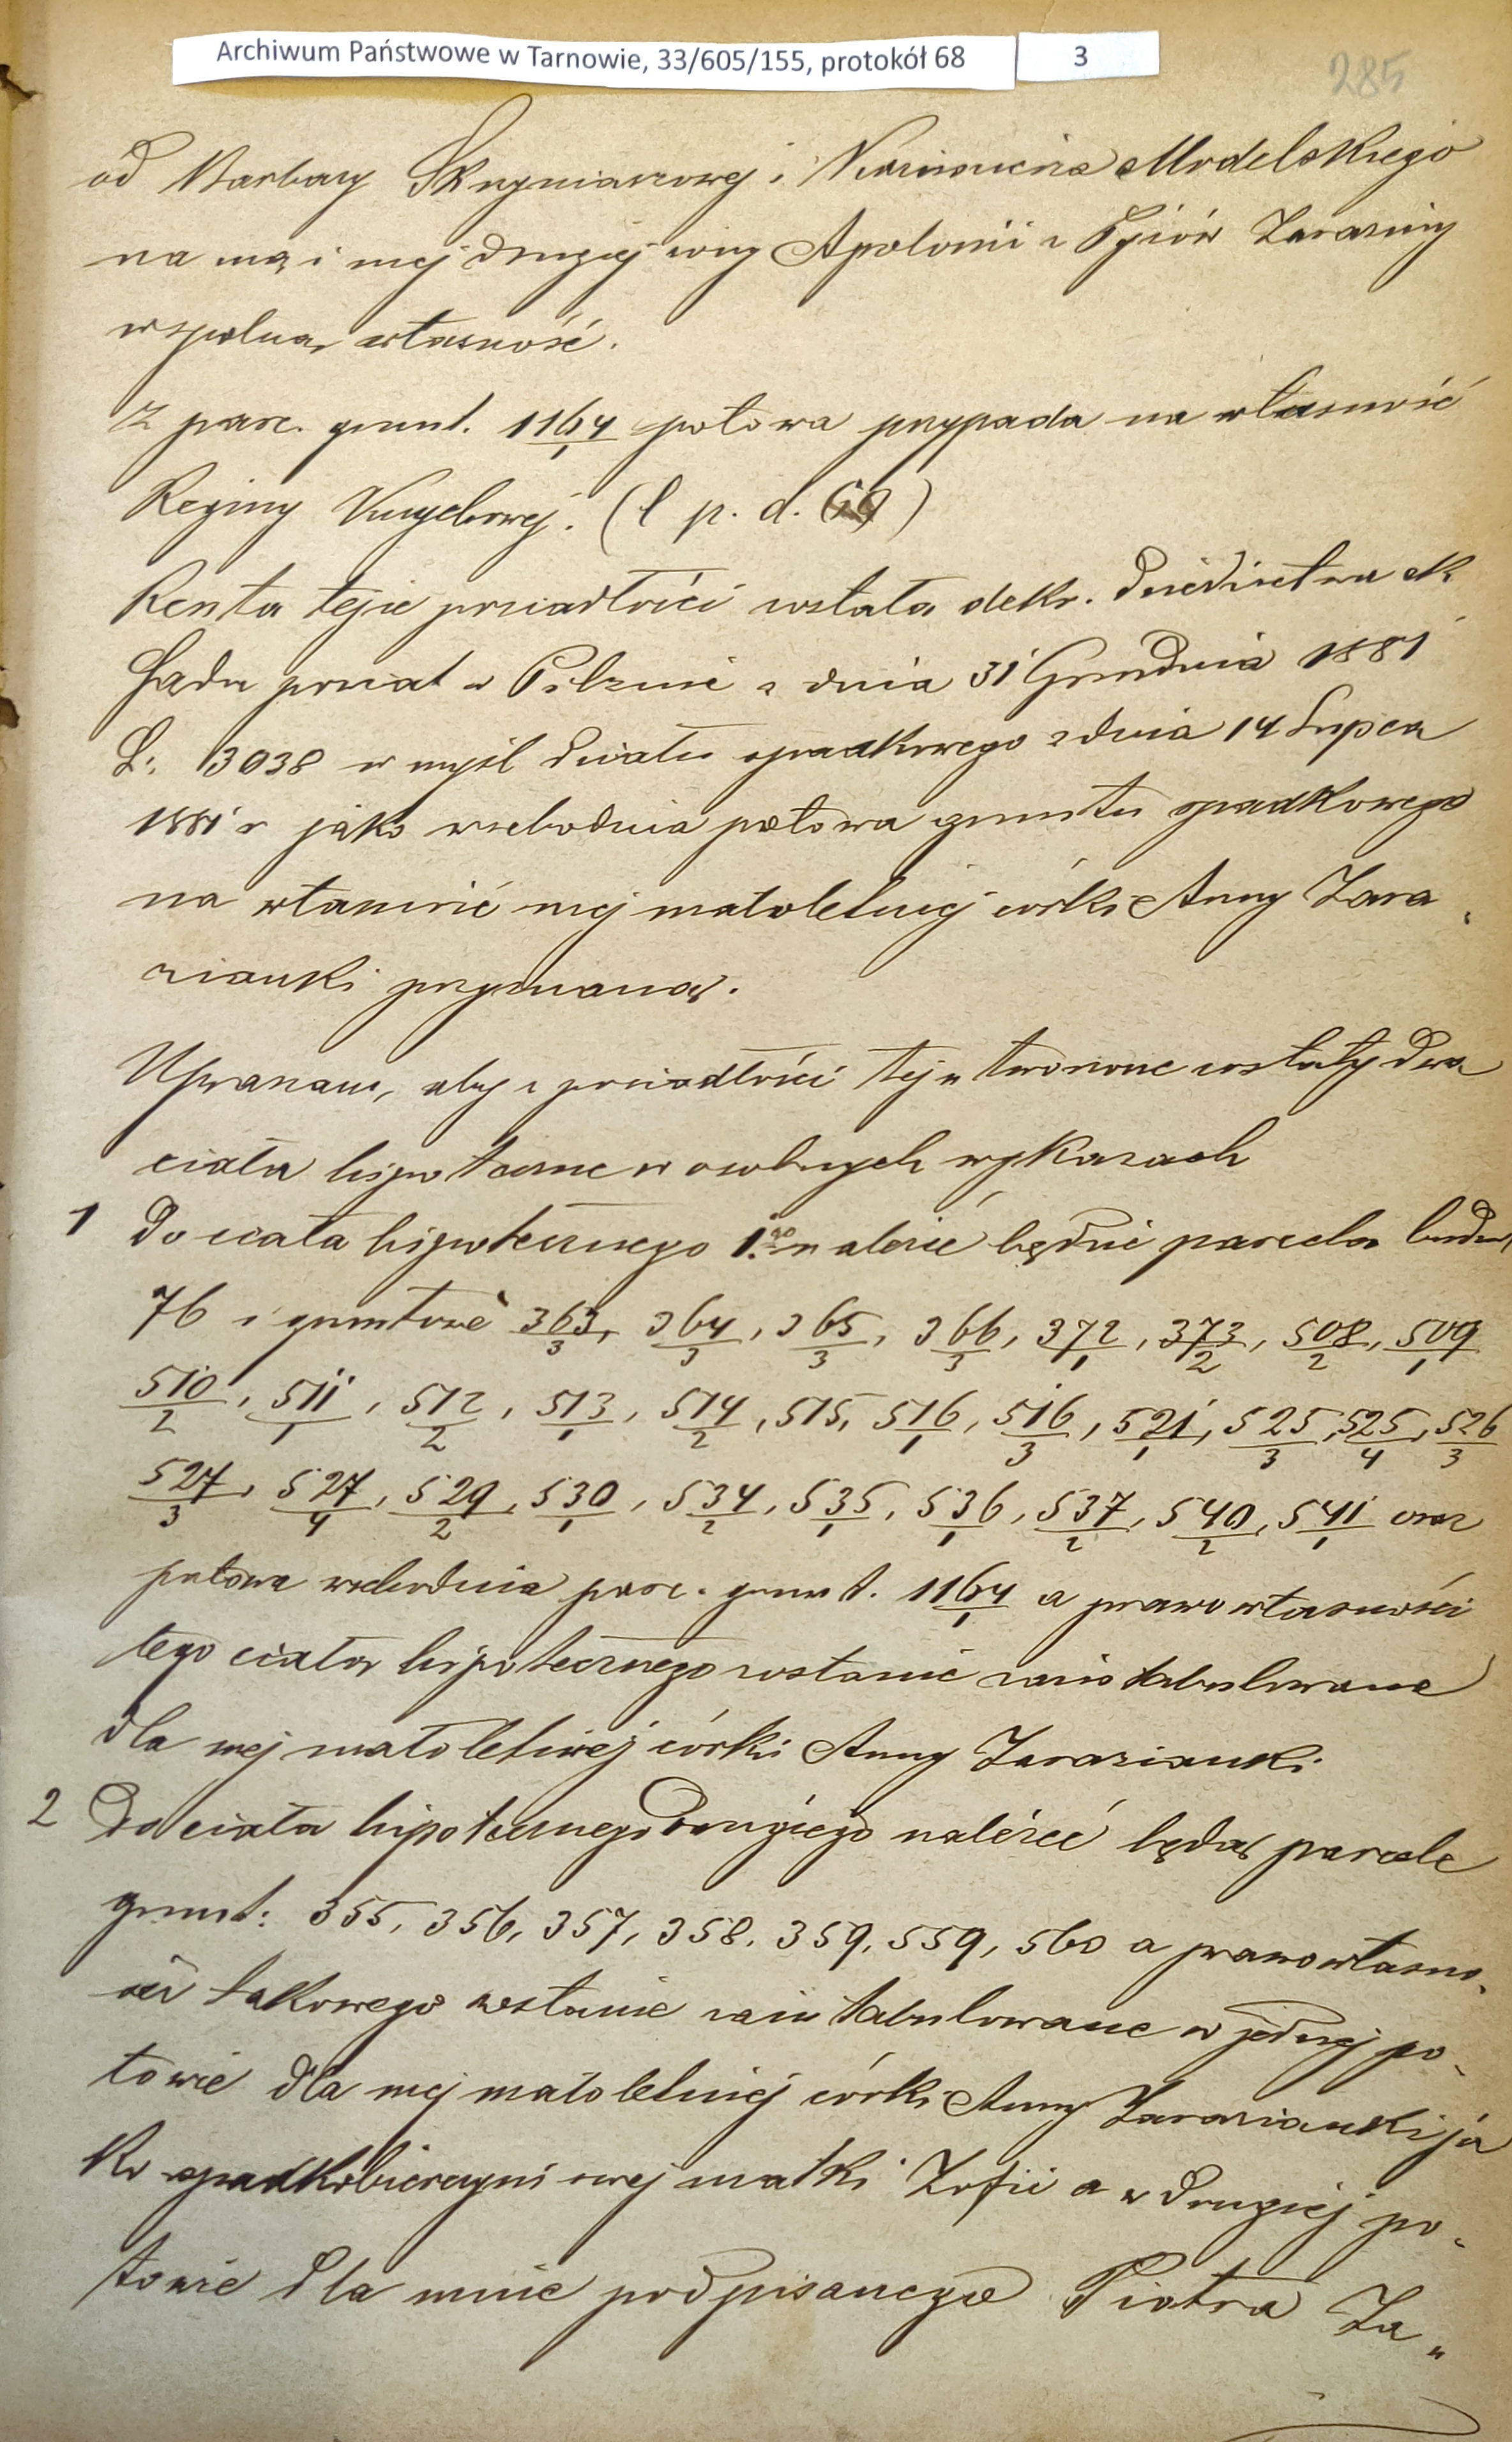 Archiwum Państwowe w Tarnowie, 33/605/155, protokół 68 3
285
od Barbary Skrzyniarzowej i Kazimierza Modelskiego
na mą i mej drugiej żony Apolonii z Zaraziny
wspólną własność.
Z parc. grunt. 1164/1 połowa przypada na własność
Reginy (l p. d. 69)
Reszta tejże posiadłości została dekr. dziedzictwa ck
Sądu powiat w Pilznie z dnia 31 Grudnia 1881
L: 13038 w myśl działu spadkowego z dnia 14 Lipca
1881 r jako wschodnia połowa gruntu spadkowego
na własność mej małoletniej córki Anny Zara
zianki przyznaną.
Upraszam, aby z posiadłości tej utworzone zostały dwa
ciała hipoteczne w osobnych wykazach
1 Do ciała hipotecznego 1.go należeć będzie parcela budow,
76 i gruntowe 363/3, 364/3, 365/3, 366/3, 372/1, 373/2, 508/2, 509/1
510/2, 511/1, 512/2, 513/1, 514/2, 515, 516/1, 516/3, 521/1, 525/3, 525/4, 526/3
527/3, 527/4, 529/2, 530/1, 534/2, 535/1, 536/1, 537/2, 540/2, 541/1 oraz
połowa wschodnia parc. grunt. 1164/1 a prawo własności
tego ciała hipotecznego zostanie zaintabulowane
dla mej małoletniej córki Anny Zarazianki.
2 Do ciała hipotecznego drugiego należeć będą parcele
grunt: 355, 356, 357, 358, 359, 559, 560 a prawo własno,
ści takowego zostanie zaintabulowane w jednej po,
łowie dla mej małoletniej córki Anny Zarazianki ja
ko spadkobierczyni swej matki Zofii a w drugiej po,
łowie dla mnie podpisanego Piotra Za„